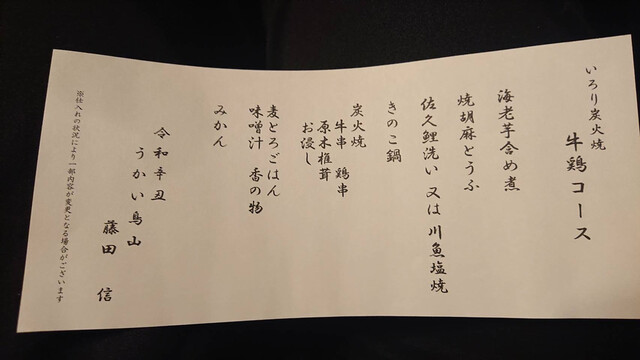 いろり炭火焼
牛鶏コース
海老芋含め煮
焼胡麻とうふ
佐久鯉洗い 又は 川魚塩焼
きのこ鍋
炭火焼
牛串 鶏串
原木椎茸
お浸し
麦とろごはん
味噌汁 香の物
みかん
令和辛丑
うかい鳥山
藤田 信
※仕入れの状況により一部内容が変更となる場合がございます